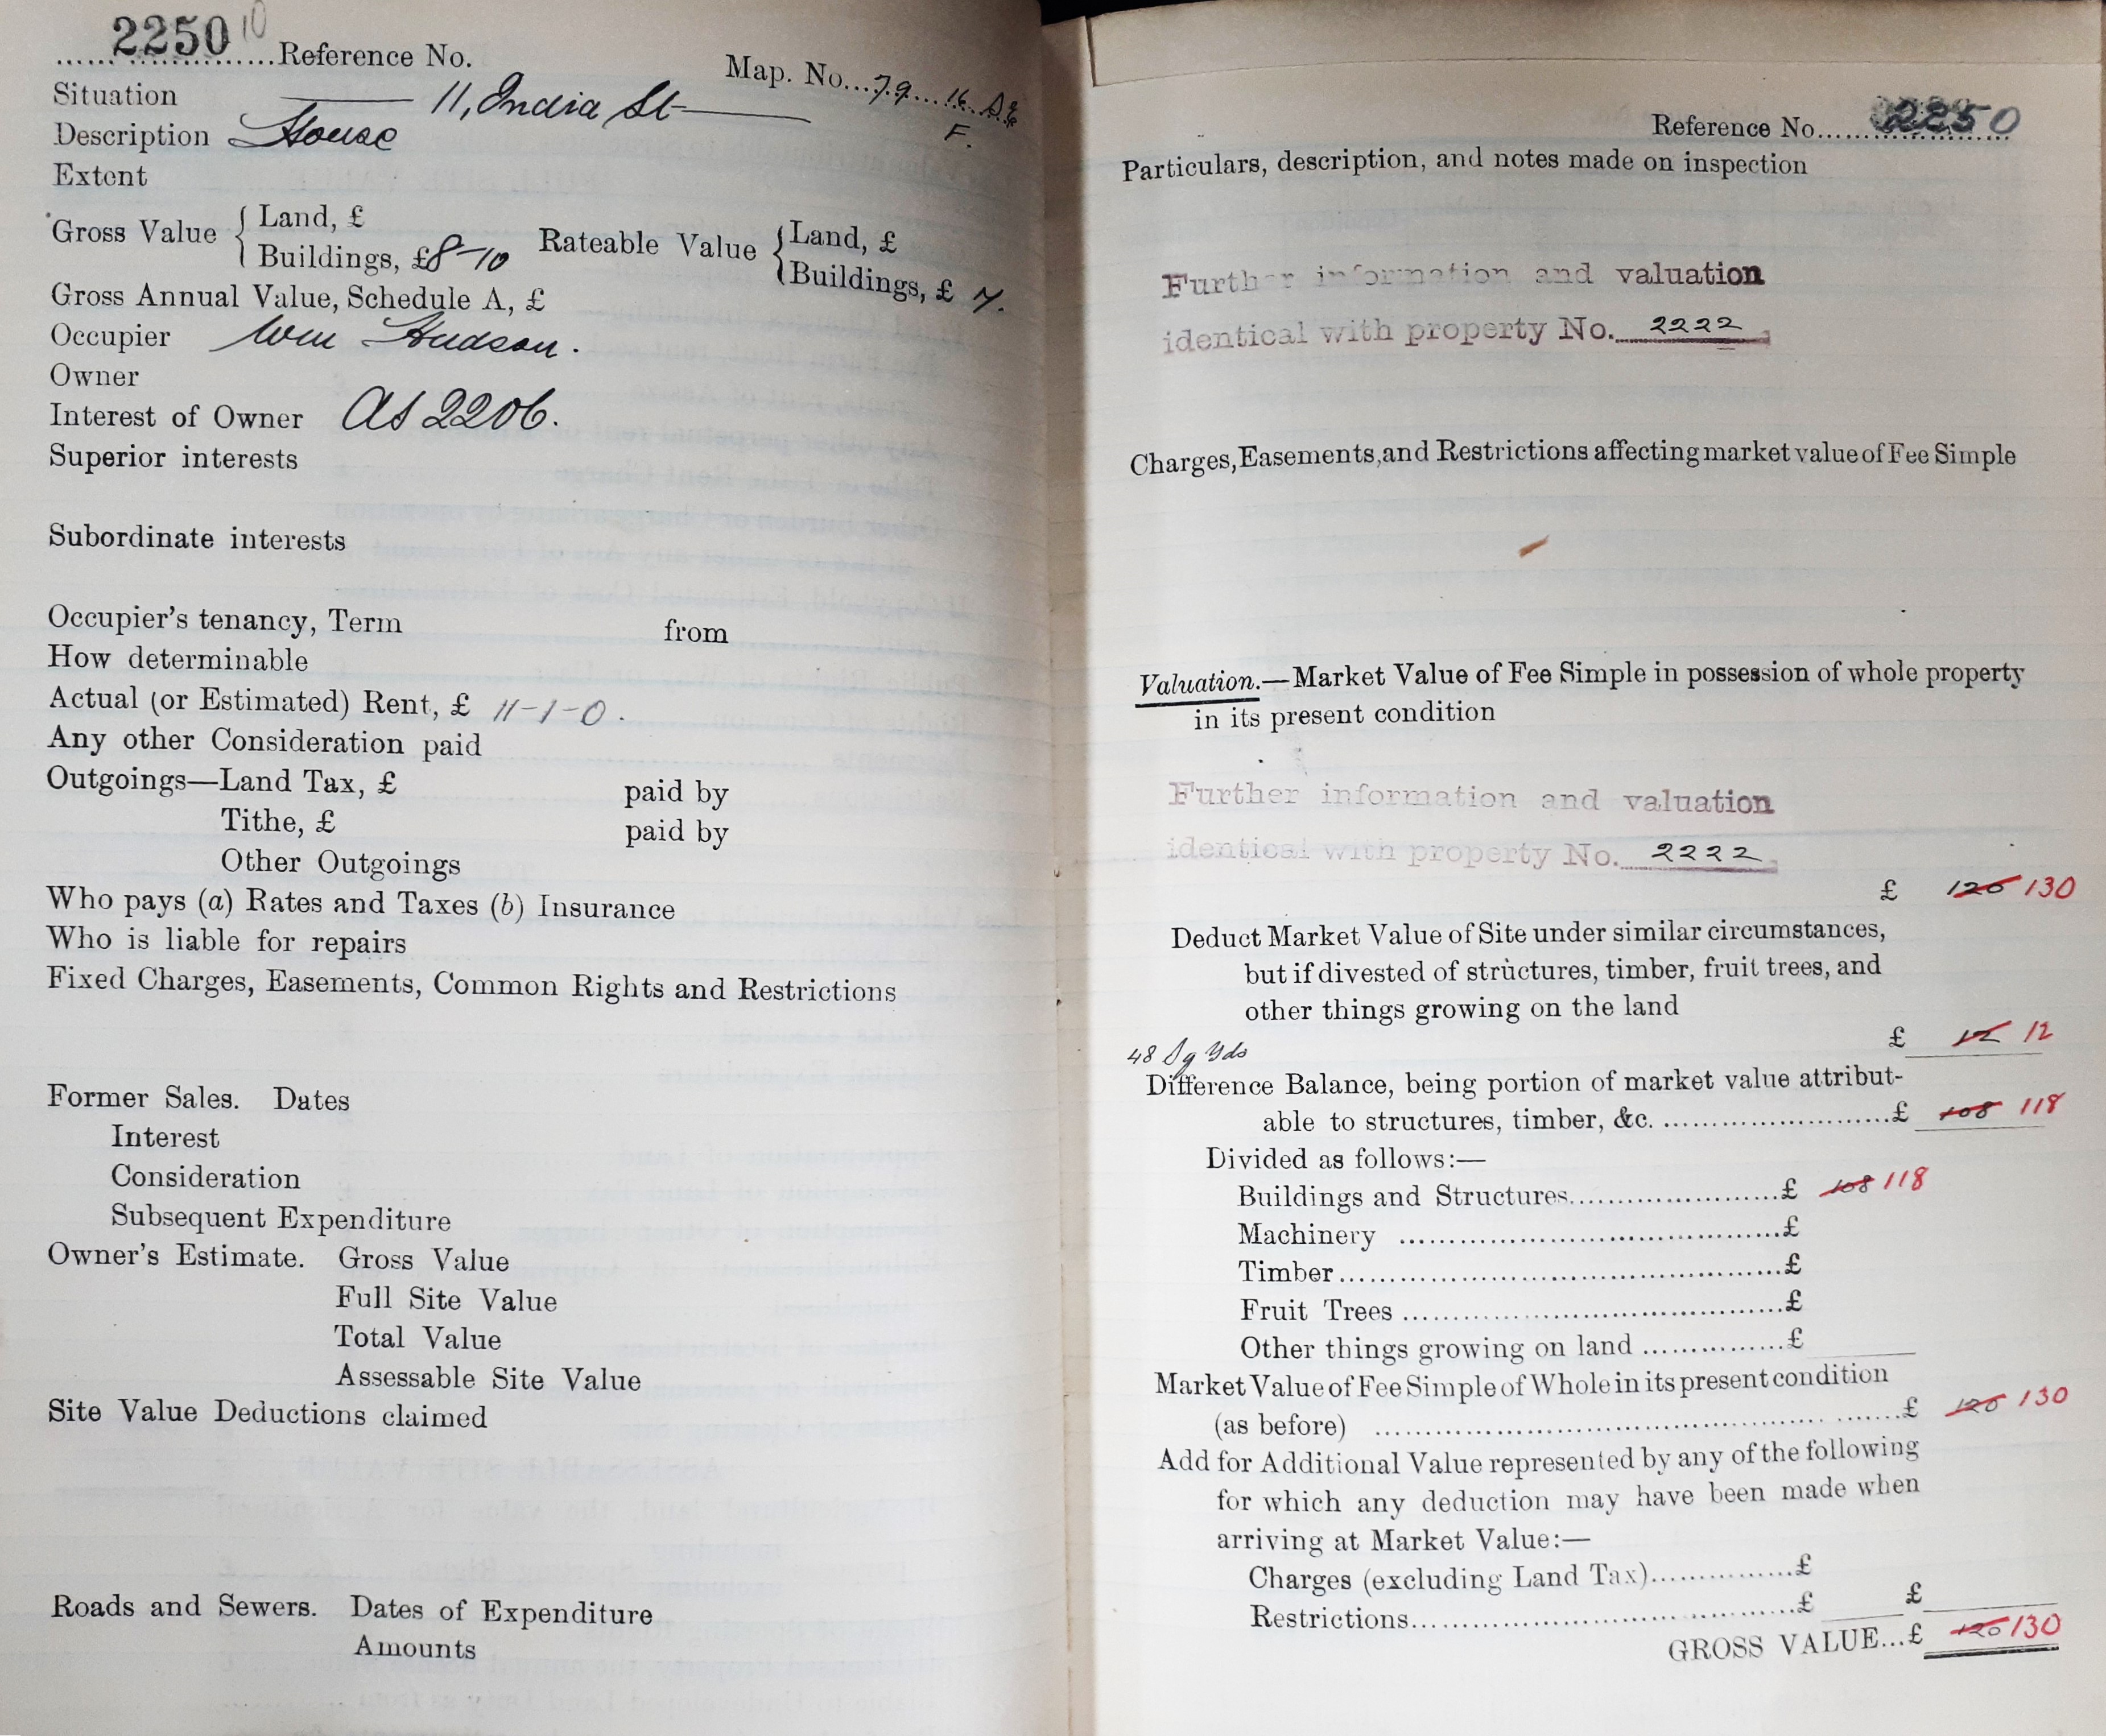 2250 10
Reference No.
Map. No. 79 16
F.
Situation 11, India St
Description House
Extent
Gross Value { Land, £
Buildings, £ 8-10
Rateable Value { Land, £
Buildings, £ 7.
Gross Annual Value, Schedule A, £
Occupier Wm Hudson.
Owner
Interest of Owner As 2206.
Superior interests
Subordinate interests
Occupier's tenancy, Term from
How determinable
Actual (or Estimated) Rent, £ 11-1-0.
Any other Consideration paid
Outgoings—Land Tax, £ paid by
Tithe, £ paid by
Other Outgoings
Who pays (a) Rates and Taxes (b) Insurance
Who is liable for repairs
Fixed Charges, Easements, Common Rights and Restrictions
Former Sales. Dates
Interest
Consideration
Subsequent Expenditure
Owner's Estimate. Gross Value
Full Site Value
Total Value
Assessable Site Value
Site Value Deductions claimed
Roads and Sewers. Dates of Expenditure
Amounts
Reference No. 2250
Particulars, description, and notes made on inspection
Further information and valuation
identical with property No. 2222
Charges, Easements, and Restrictions affecting market value of Fee Simple
Valuation.—Market Value of Fee Simple in possession of whole property
in its present condition
Further information and valuation
identical with property No. 2222
£ 120 130
Deduct Market Value of Site under similar circumstances,
but if divested of structures, timber, fruit trees, and
other things growing on the land
£ 12 12
48 Sq Yds
Difference Balance, being portion of market value attribut-
able to structures, timber, &c. £ 108 118
Divided as follows:—
Buildings and Structures £ 108 118
Machinery £
Timber £
Fruit Trees £
Other things growing on land £
Market Value of Fee Simple of Whole in its present condition
(as before) £ 120 130
Add for Additional Value represented by any of the following
for which any deduction may have been made when
arriving at Market Value:—
Charges (excluding Land Tax) £
Restrictions £ £
GROSS VALUE...£ 120 130